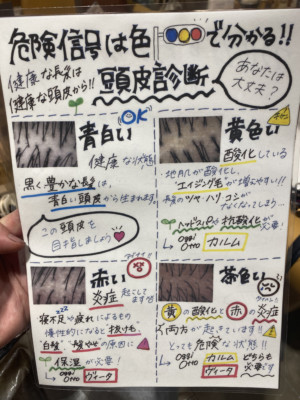 危険信号は色 で分かる!!
健康な長髪は
健康な頭皮から!!
頭皮診断
あなたは
大丈夫?
OK
青白い
健康な状態
黒く豊かな髪は、
青白い頭皮から生まれます
この頭皮を
目指しましょう
黄色い
酸化している
・地肌が酸化し、
"エイジング毛"が増えやすい!!
・髪のツヤ ハリ コシが
なくなってしまう…
抗酸化が必要!
oggi
otto
カルム
赤い
炎症 起こして
ます
zzz
寝不足や疲れによるもの
慢性的になると"抜け毛"
"白髪" の原因に
保湿が必要!
oggi
otto
ヴィータ
茶色い
黄の酸化と赤の炎症
両方が起きています!!
とっても危険な状態!!
oggi
otto
カルム
ヴィータ
どちらも
必要です